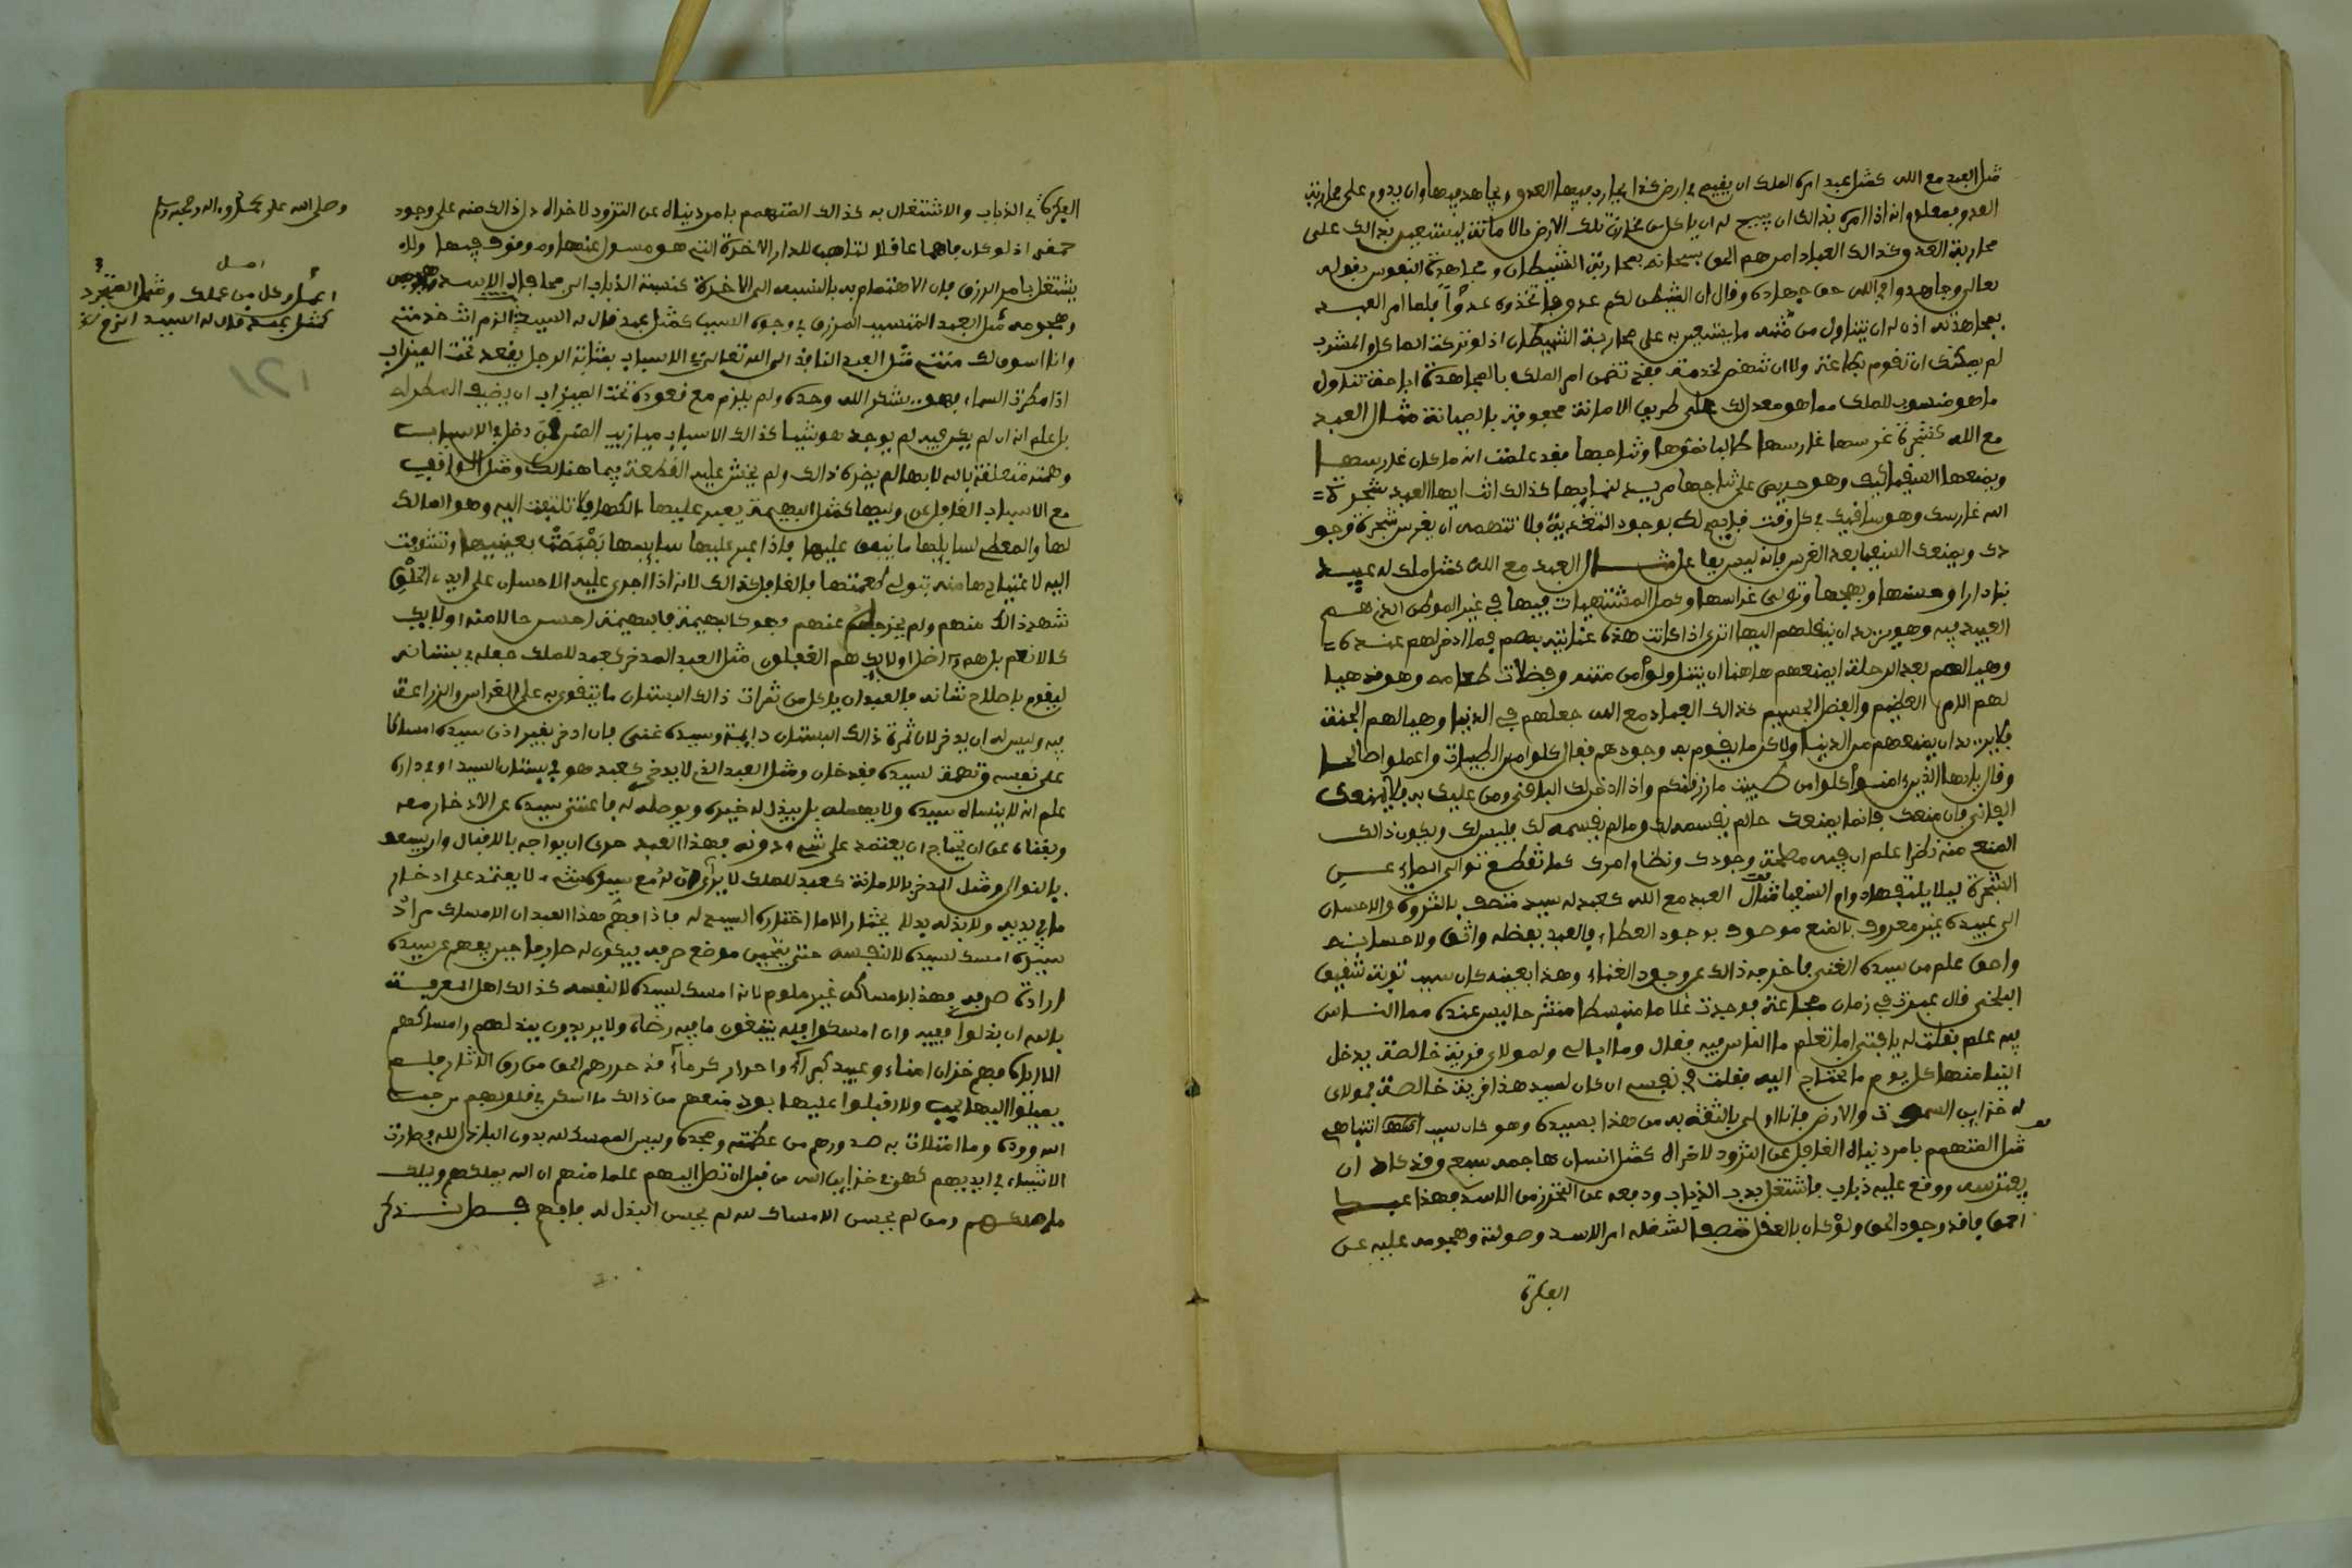 مثل العبد مع الله كمثل عبد امره الملك ان يقيم في ارض كذا يحارب فيها العدو ويجاهد فيها وان يدوم على محاربة
العدو فمعلوم انه اذا امره بذالك ان يبيح له ان ياكل من مخازن تلك الارض بالامانة ليستعين بذالك على
محاربة العدو كذالك العباد امرهم الحق سبحانه بمحاربة الشيطان ومجاهدة النفوس بقوله
تعالى وجاهدوا في الله حق جهاده وقال ان الشيطن لكم عدو فاتخذوه عدوّا فلما امر العبد
بمجاهدته اذن له ان يتناول من منته ما يستعين به على محاربة الشيطان اذ لو تركت الماكل والمشرب
لم يمكنك ان تقوم بطاعته ولا ان تنهض لخدمته فقد تضمن امر الملك بالمجاهدة اباحة تناول
ما هو منسوب للملك مما هو معد لك على طريق الامانة محفوفة بالصيانة مثال العبد
مع الله كشجرة غرسها غارسها طالبا نموها ونتاجها فقد علمت انه ما كان غارسها
ويمنعها السقيا كيف وهو حريص على نتاجها مريد لنمايها كذالك انت ايها العبد شجرة
الله غارسك وهو ساقيك في كل وقت قايم لك بوجود التغذية فلا تتهمه ان يغرس شجرة وجو
دك ويمنعك السقيا بعد الغرس فانه ليس بغافل مثال العبد مع الله كمثل ملك له عبيد
بنا دارا وحسنها وبهجها وتولى غراسها وكمل المشتهيات فيها في غير الموطن الذي هم
العبيد فيه وهو يريد ان ينقلهم اليها اترى اذا كانت هذه عنايته بهم فيما ادخر لهم عنده
وهيا لهم بعد الرحلة ايمنعهم هاهنا ان يتناولوا من منته وفضلات طعامه وهو قد هيا
لهم الامر العظيم والفضل الجسيم كذالك العباد مع الله جعلهم في الدنيا وهيا لهم الجنة
فلا يريد ان يمنعهم من الدنيا ولاكن ما يقوم به وجودهم فقال كلوا من الطيبات واعملوا صالحا
وقال يايها الذين ءامنوا كلوا من طيبت ما رزقنكم واذا ادخر لك الباقي ومن عليك به فلا يمنعك
الفاني فان منعك فانما يمنعك ما لم يقسمه لك وما لم يقسمه لك فليس لك ويكون ذالك
المنع منه نظرا علم ان فيه مصلحة وجودك ونظام امرك كما تقطع توالي الماء عن
الشجرة ليلا يلتفها دوام السقيا مثال العبد مع الله كعبد له سيد متصف بالثروة والاحسان
الى عبيده غير معروف بالمنع موصوف بوجود العطاء فالعبد بفضله واثق ولاحسانه
واحق علم من سيده الغنى فاخرجه ذالك عن وجود العناء وهذا بعينه كان سبب توبة شقيق
البلخي قال عبرت في زمان مجاعة فوجدت غلاما منبسطا منشرحا ليس عنده مما الناس
فيه علم فقلت له يا فتى اما تعلم ما الناس فيه فقال وما ابالي ولمولاي قرية خالصة يدخل
الينا منها كل يوم ما نحتاج اليه فقلت في نفسي ان كان لسيد هذا قرية خالصة فمولاي
له خزاين السموت والارض فانا اولى بالثقة به من هذا بسيده وهو كان سبب انتباهي
مثل المتهمم بامر دنياه الغافل عن التزود لاخراه كمثل انسان هاجمه سبع وقد كاد ان
يفترسه ووقع عليه ذباب فاشتغل بذب الذباب ودفعه عن التحرز من الاسد فهذا عبد
احمق فاقد وجود الحق ولو كان بالعقل متصفا لشغله امر الاسد وصولته وهجومه عليه عن
الفكرة
الفكرة في الذباب والاشتغال به كذالك المتهمم بامر دنياه عن التزود لاخراه دل ذالك منه على وجود
حمقه اذ لو كان فاهما عاقلا لتاهب للدار الاخرة التي هو مسول عنها وموقوف فيها ولا
يشتغل بامر الرزق فان الاهتمام به بالنسبة الى الاخرة كنسبة الذباب الى مفاجاة الاسد
وهجومه مثل العبد المتسبب المرزوق في وجود السبب كمثل عبد قال له السيد الزم انت خدمتي
وانا اسوق لك منتي مثل العبد النافذ الى الله تعالى في الاسباب بمثابة الرجل يقعد تحت الميزاب
اذا مطرت السماء فهو يشكر الله وحده ولم يلزم مع قعوده تحت الميزاب ان يضيف المطر له
بل علم انه ان لم يكن فيه لم يوجد هو شيا كذالك الاسباب ميازيب المنن فمن دخل في الاسباب
وهمته متعلقة بالله لا بها لم يضره ذالك ولم يخش عليه القطعة فيما هنالك ومثل الواقف
مع الاسباب الغافل عن وليها كمثل البهيمة يعبر عليها مالكها فلا تلتفت اليه وهو المالك
لها والمعطي لسايسها ما ينفق عليها فاذا عبر عليها سايسها بصبصت بعينيها وتشوفت
اليه لاعتيادها منه يتولى طعمتها فالغافل كذالك لانه اذا اجرى عليه الاحسان على ايدي الخلق
شهد ذالك منهم ولم يخرجه عنهم فهو كالبهيمة فالبهيمة احسن حالا منه اوليك
كالانعم بل هم اضل اوليك هم الغفلون مثل العبد المدخر كعبد للملك جعله في بستانه
ليقوم باصلاح شانه فالعبد ان ياكل من ثمرات ذالك البستان ما يتقوى به على الغراس والزراعة
فيه وليس له ان يدخر لان ثمرة ذالك البستان دايمة وسيده غني فان ادخر بغير اذن سيده امساكا
على نفسه وتهمة لسيده فقد خان ومثل العبد الذي لا يدخر كعبد هو في بستان السيد او في داره
علم انه لا ينساه سيده ولا يهمله بل يبذل له خيره ويوصله له فاغتنى بسيده عن الادخار معه
وبغناه عن ان يحتاج ان يعتمد على شيء دونه فهذا العبد حري ان يواجه بالاقبال وان يسعف
بالنوال ومثل المدخر بالامانة كعبد للملك لا يرى ان له مع سيده شيء لا يعتمد على ادخار
ما في يديه ولا بذله بل لا يختار الا ما اختاره السيد له فاذا فهم هذا العبد ان الامساك مراد
سيده امسك لسيده لا لنفسه حتى يتحين موضع صرفه فيكون له صارفا حين يفهم عن سيده
ارادة صرفه فهذا بامساكه غير ملوم لانه امسك لسيده لا لنفسه كذالك اهل المعرفة
بالله ان بذلوا فبه وان امسكوا فله يبتغون ما فيه رضاه ولا يريدون ببذلهم وامساكهم
الا اياه فهم خزان امناء وعبيد كبراء واحرار كرماء قد حررهم الحق من رق الاثار فلم
يميلوا اليها بحب ولا اقبلوا عليها بود منعهم من ذالك ما اسكن في قلوبهم من حب
الله ووده وما امتلات به صدورهم من عظمته ومجده وليس الممسك لله بدون الباذل لله فصارت
الاشياء في ايديهم كهي في خزاين الله من قبل ان تصل اليهم علما منهم ان الله يملكهم ويملك
ما ملكهم ومن لم يحسن الامساك لله لم يحسن البذل له فافهم فصل نذكر
وصلى الله على محمد وءاله وصحبه وسلم
اصل
اعمل وكل من عملك ومثل المتجرد
كمثل عبد قال له السيد الزم انت
121